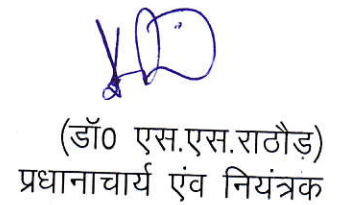 (डॉ0 एस.एस.राठौड़)
प्रधानाचार्य एंव नियंत्रक